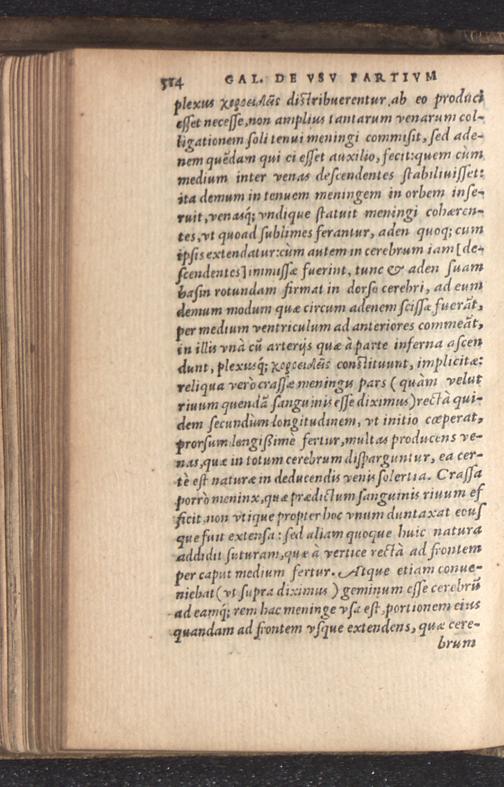 514 GAL. DE VSV PARTIVM
plexus χοροειδεῖς distribuerentur, ab eo produci
esset necesse, non amplius tantarum venarum col-
ligationem soli tenui meningi commisit, sed ade-
nem quẽdam qui ci esset auxilio, fecit: quem cùm
medium inter venas descendentes stabiliuisset:
ita demum in tenuem meningem in orbem inse-
ruit, venasq́; vndique statuit meningi cohæren-
tes, vt quoad sublimes ferantur, aden quoq; cum
ipsis extendatur: cùm autem in cerebrum iam [de-
scendentes] immissæ fuerint, tunc & aden suam
basin rotundam firmat in dorso cerebri, ad eum
demum modum quæ circum adenem scissæ fuerãt,
per medium ventriculum ad anteriores commeãt,
in illis vnà cũ arterijs quæ à parte inferna ascen
dunt, plexusq́; χοροειδεῖς constituunt, implicitæ:
reliqua verò crassæ meningis pars (quàm velut
riuum quendã sanguinis esse diximus) rectà qui-
dem secundùm longitudinem, vt initio cœperat,
prorsum longißimè fertur, multas producens ve-
nas, quæ in totum cerebrum disparguntur, ea cer-
tè est naturæ in deducendis venis solertia. Crassa
porrò meninx, quæ prædictum sanguinis riuum ef
ficit, non vtique propter hoc vnum duntaxat eous
que fuit extensa: sed aliam quoque huic natura
addidit suturam, quæ à vertice rectà ad frontem
per caput medium fertur. Atque etiam conue-
niebat (vt supra diximus) geminum esse cerebrũ
ad eamq́; rem hac meninge vsa est, portionem eius
quandam ad frontem vsque extendens, quæ cere-
brum